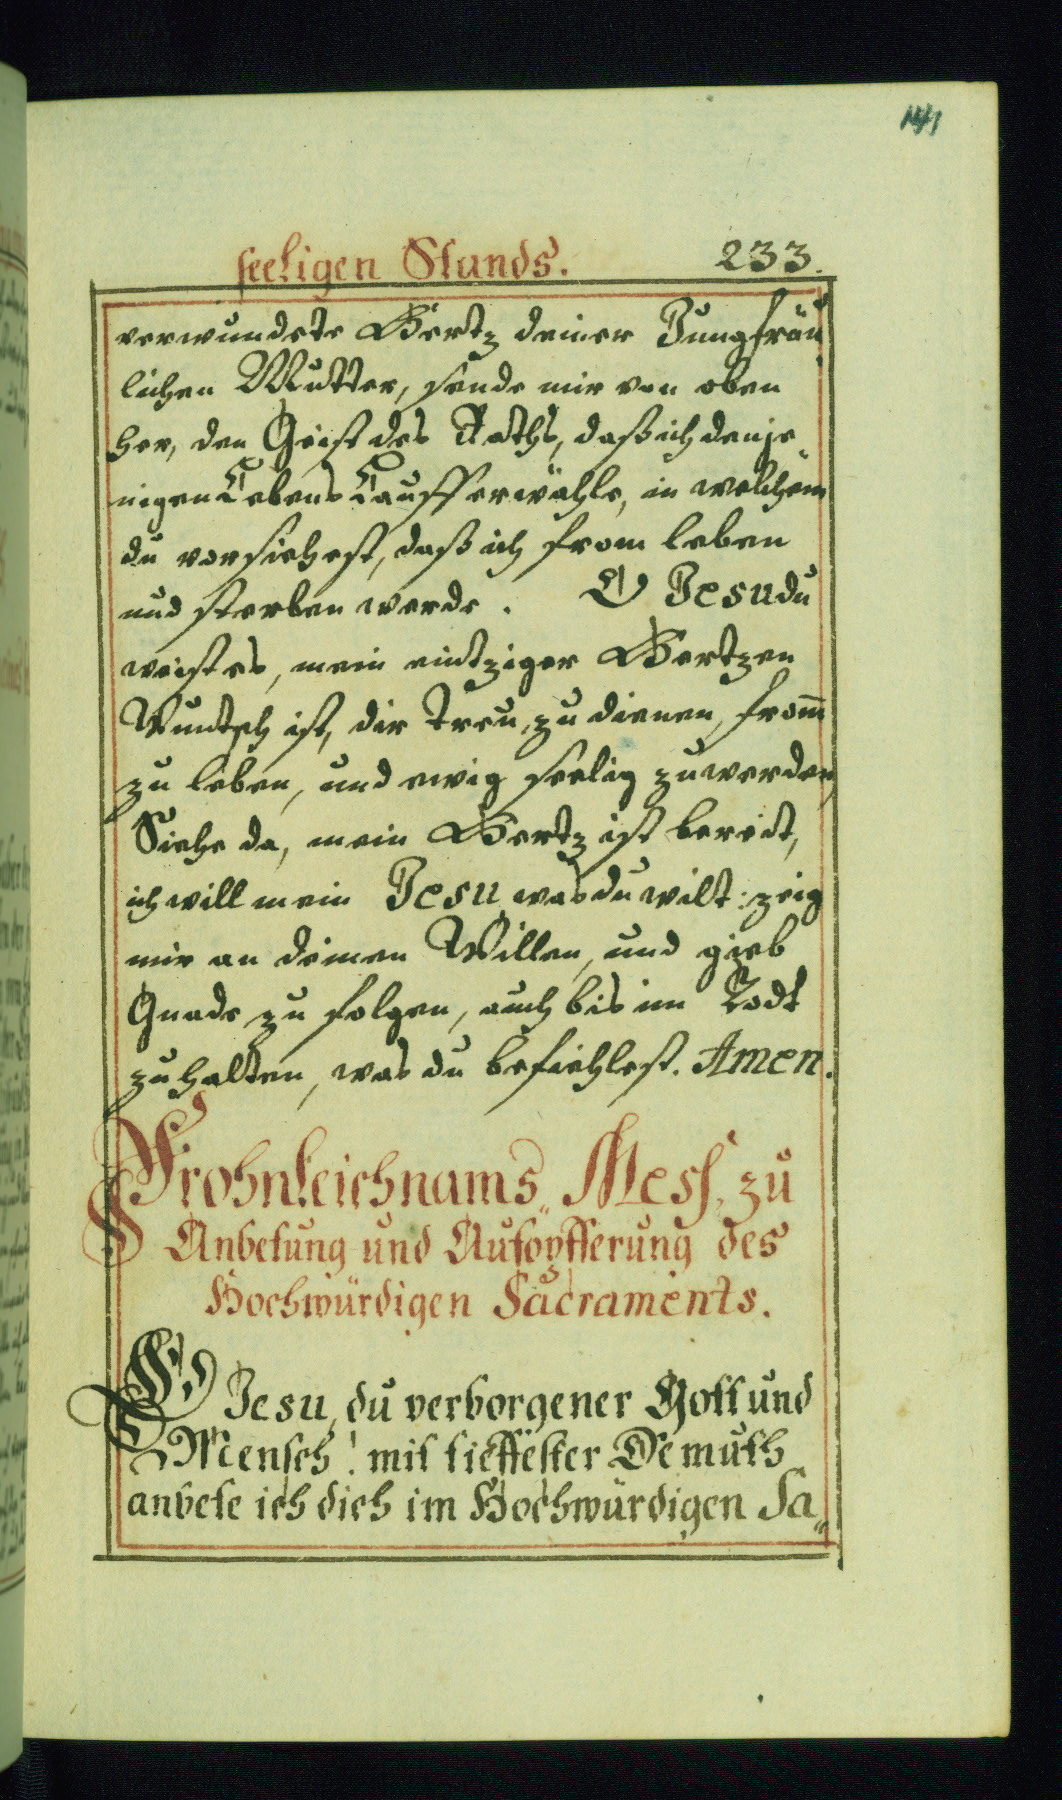 141
seeligen Stands. 233.
verwundete Hertz deiner Jungfräu
lichen Mutter, sende mir von oben
her, den Geist des Raths, daß ich denje„
nigen Lebens Lauff erwähle, in welchem
du vorsiehest, daß ich from leben
und sterben werde. O Jesu du
weist es, mein eintziger Hertzen
Wuntsch ist, dir treu zu dienen, from̄
zu leben, und ewig seelig zu werden,
Siehe da, mein Hertz ist bereit,
ich will mein Jesu was du wilt: zeig
mir an deinen Willen, und gieb
Gnade zu folgen, auch bis im Todt
zu halten, was du befiehlest. Amen.
Frohnleichnams„ Mess, zu
Anbetung und Aufopfferung des
Hochwürdigen Sacraments.
O Jesu, du verborgener Gott und
Mensch! mit tieffester Demuth
anbete ich dich im Hochwürdigen Sa„